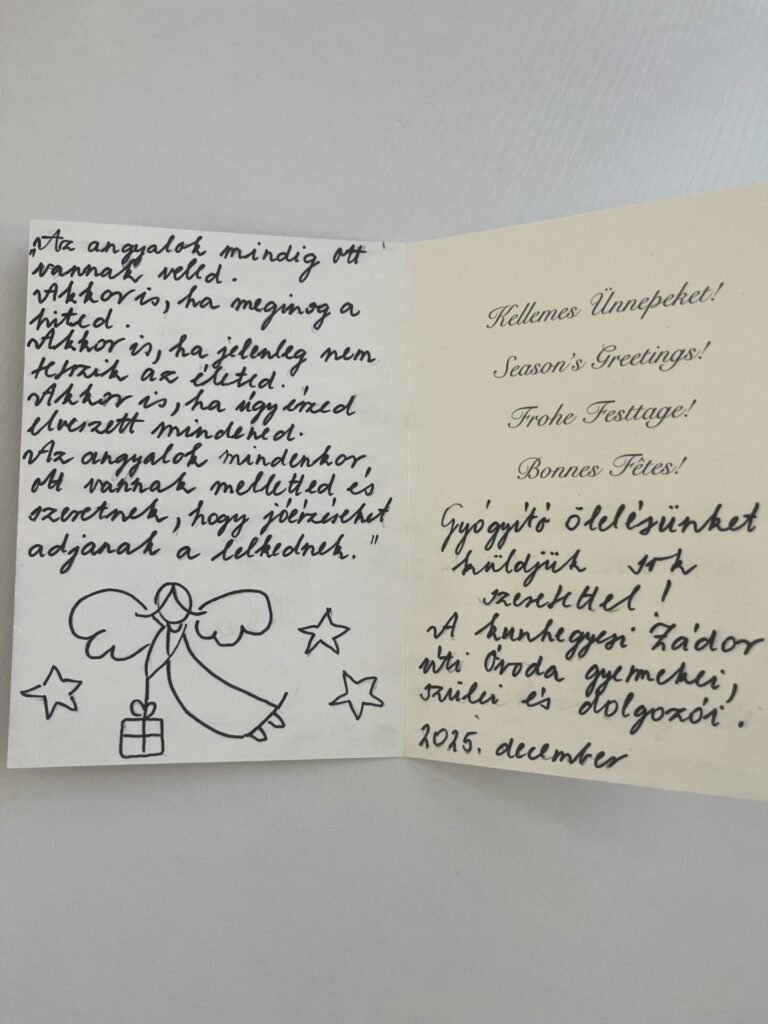 „Az angyalok mindig ott
vannak veled.
Akkor is, ha meginog a
hited.
Akkor is, ha jelenleg nem
tetszik az életed.
Akkor is, ha úgy érzed
elveszett mindened.
Az angyalok mindenkor
ott vannak melletted és
szeretnek, hogy jóérzéseket
adjanak a lelkednek."
Kellemes Ünnepeket!
Season's Greetings!
Frohe Festtage!
Bonnes Fêtes!
Gyógyító ölelésünket
küldjük sok
szeretettel!
A kunhegyesi Zádor
úti Óvoda gyermekei,
szülei és dolgozói.
2025. december